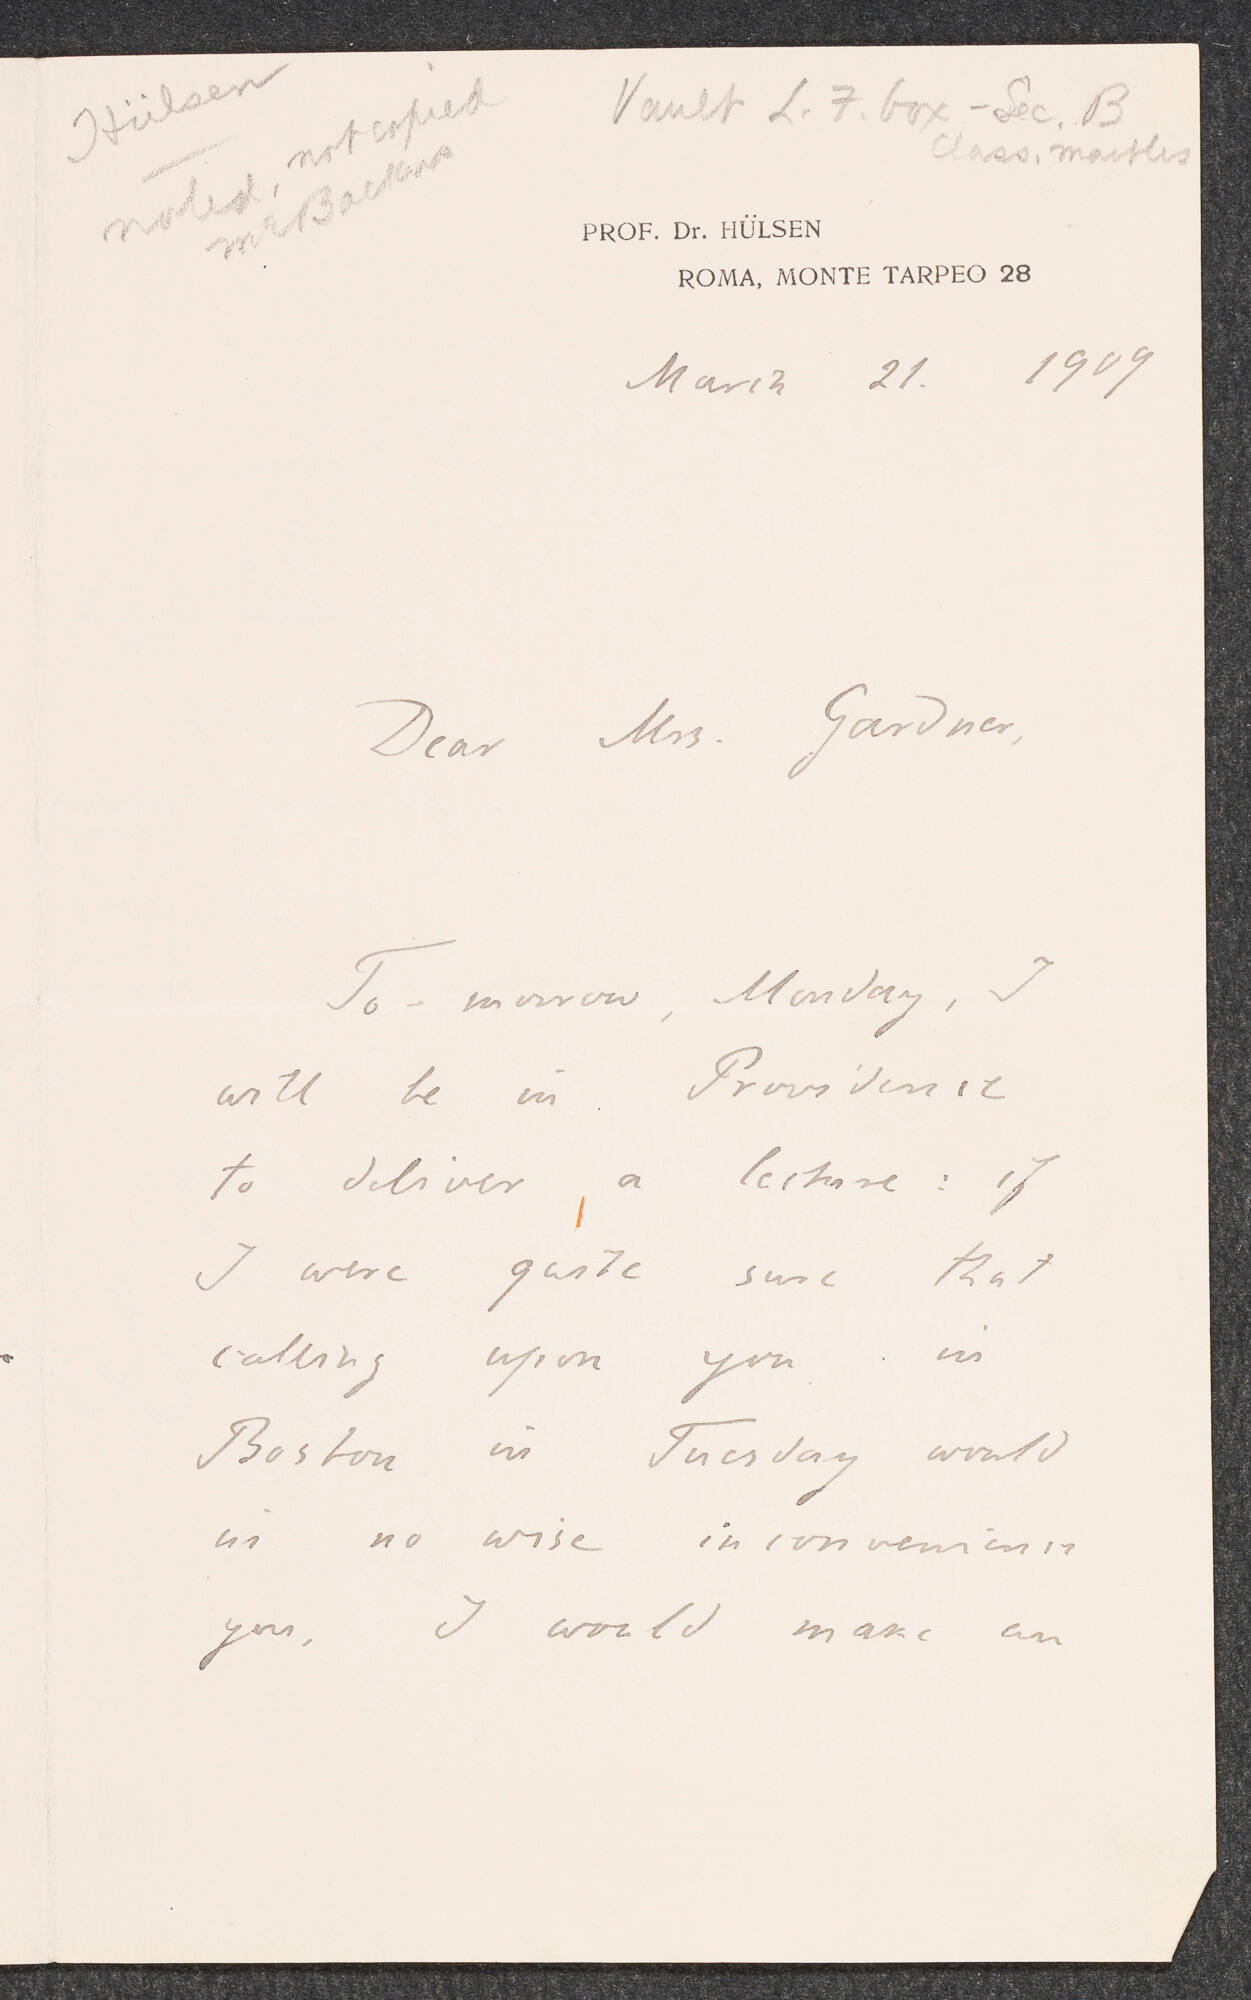 Hülsen
noted, not copied
Vault L. F. box - Sec. B
Class. marbles
PROF. Dr. HÜLSEN
ROMA, MONTE TARPEO 28
March 21. 1909
Dear Mrs. Gardner,
To-morrow, Monday, I
will be in Providence
to deliver a lecture: if
I were quite sure that
calling upon you in
Boston in Tuesday would
in no wise inconvenience
you, I would make an